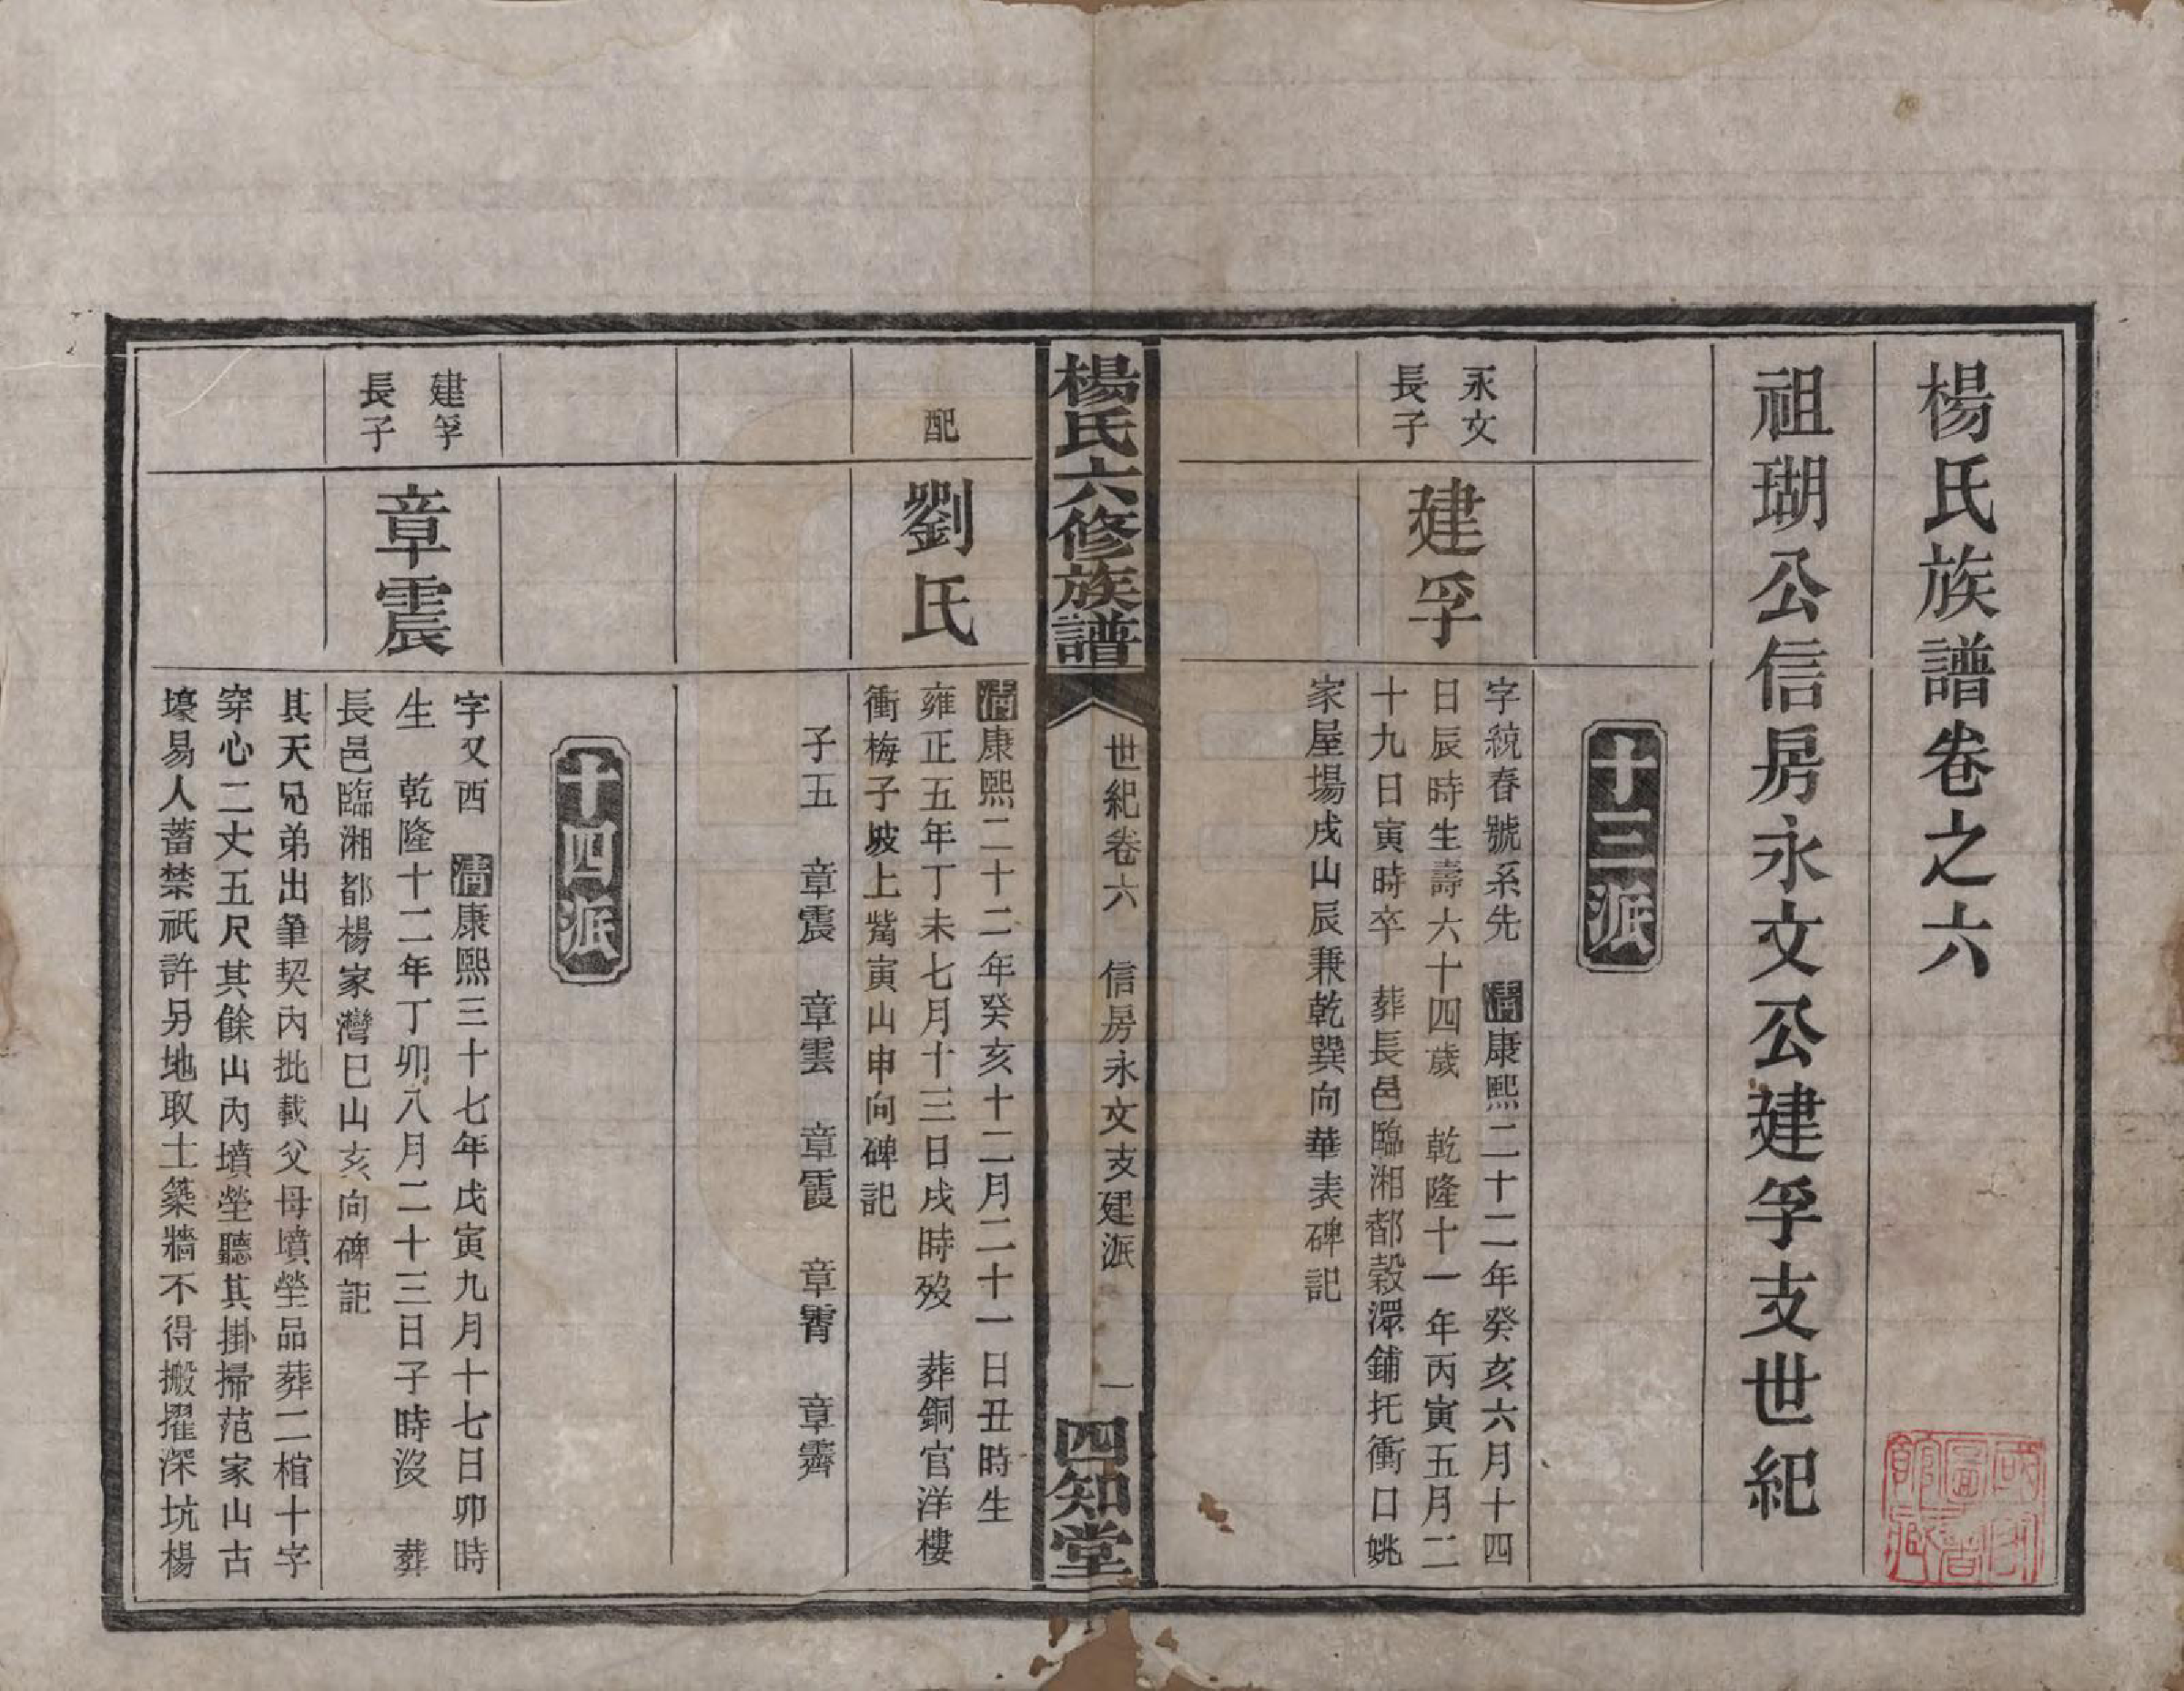 楊氏族譜卷之六
祖瑚公信房永文公建孚支世紀
十三派
永文
長子
建孚
字統春號系先　清康熙二十二年癸亥六月十四
日辰時生壽六十四歲　乾隆十一年丙寅五月二
十九日寅時卒　葬長邑臨湘都榖澴鋪托衝口姚
家屋場戌山辰兼乾巽向華表碑記
楊氏六修族譜
世紀卷六　信房永文支建派
一
四知堂
配
劉氏
清康熙二十二年癸亥十二月二十一日丑時生
雍正五年丁未七月十三日戌時歿　葬銅官洋樓
衝梅子坡上觜寅山申向碑記
子五　章震　章雲　章霞　章霄　章霽
十四派
建孚
長子
章震
字又酉　清康熙三十七年戊寅九月十七日卯時
生　乾隆十二年丁卯八月二十三日子時沒　葬
長邑臨湘都楊家灣巳山亥向碑記
其天兄弟出筆契內批載父母墳塋品葬二棺十字
穿心二丈五尺其餘山內墳塋聽其掛掃范家山古
壕易人蓄禁祇許另地取土築牆不得搬擢深坑楊